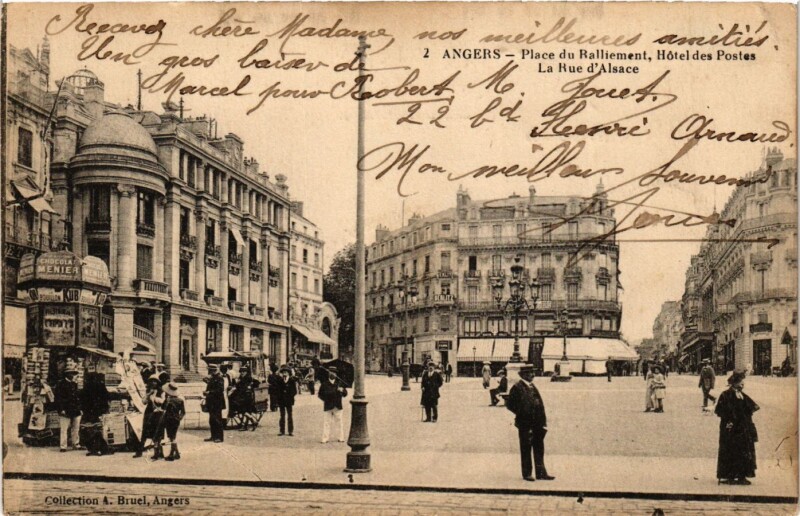 Recevez chère Madame, nos meilleures amitiés.
Un gros baiser de
Marcel pour Robert. M. Jouet.
22 bd Henri Arnaud.
Mon meilleur souvenir
Jouet
2 ANGERS - Place du Ralliement, Hôtel des Postes
La Rue d'Alsace
CHOCOLAT
MENIER
KUB
Collection A. Bruel, Angers